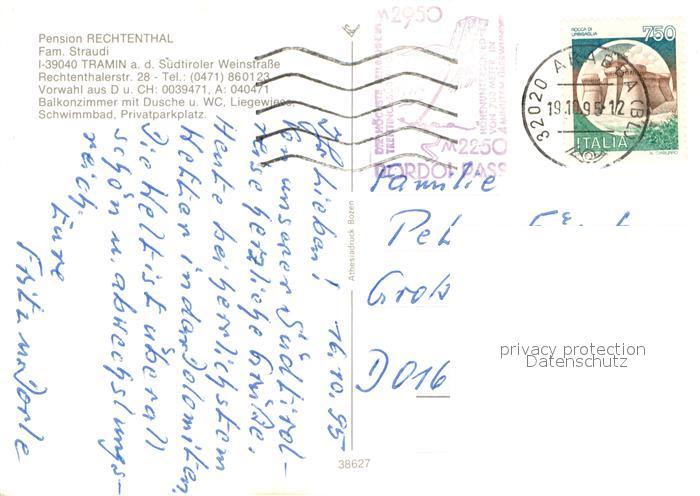 Pension RECHTENTHAL
Fam. Straudi
I-39040 TRAMIN a. d. Südtiroler Weinstraße
Rechtenthalerstr. 28 - Tel.: (0471) 860123
Vorwahl aus D u. CH: 0039471, A: 040471
Balkonzimmer mit Dusche u. WC, Liegewiese,
Schwimmbad, Privatparkplatz.
Ihr Lieben! 16.10.95
Von unserer Südtirol-
reise herzliche Grüße.
Heute bei herrlichstem
Wetter in den Dolomiten.
Die Welt ist überall
schön u. abwechslungs-
reich.
Eure
Fritz u. Dorle
Athesiadruck Bozen
38627
M 2950
M 2250
PORDOI PASS
ROCCA DI URBISAGLIA
750
ITALIA
32020 (BL)
19.10.95-12
Familie
Pet
Groß
D 016
privacy protection
Datenschutz